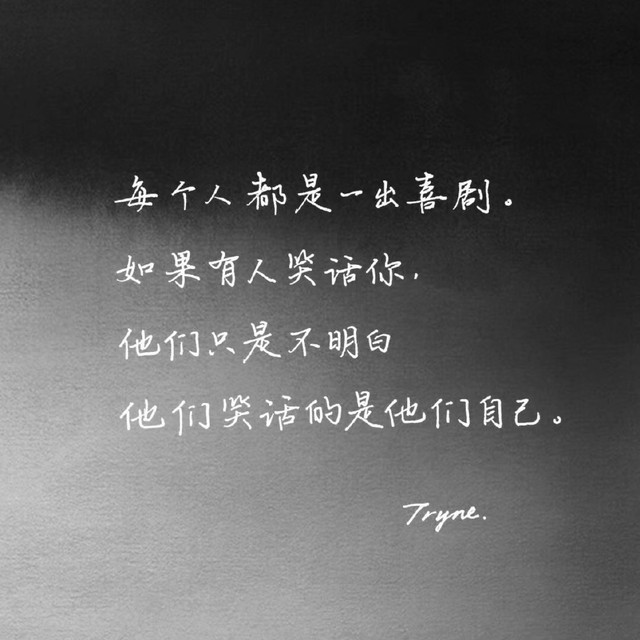 每个人都是一出喜剧。
如果有人笑话你，
他们只是不明白
他们笑话的是他们自己。
Tryne.